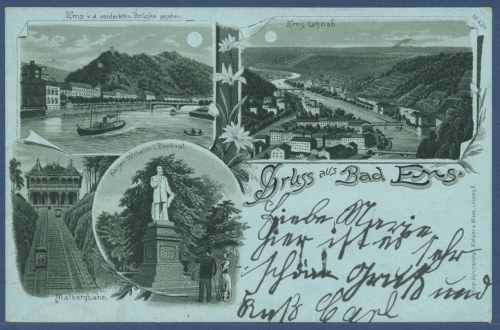 Ems v. d. verdeckten Brücke gesehen.
Ems Lahnab
Kaiser Wilhelm I. Denkmal.
Malbergbahn.
Gruss aus Bad Ems.
Liebe Marie
hier ist es sehr
schön Gruß und
Kuß Carl